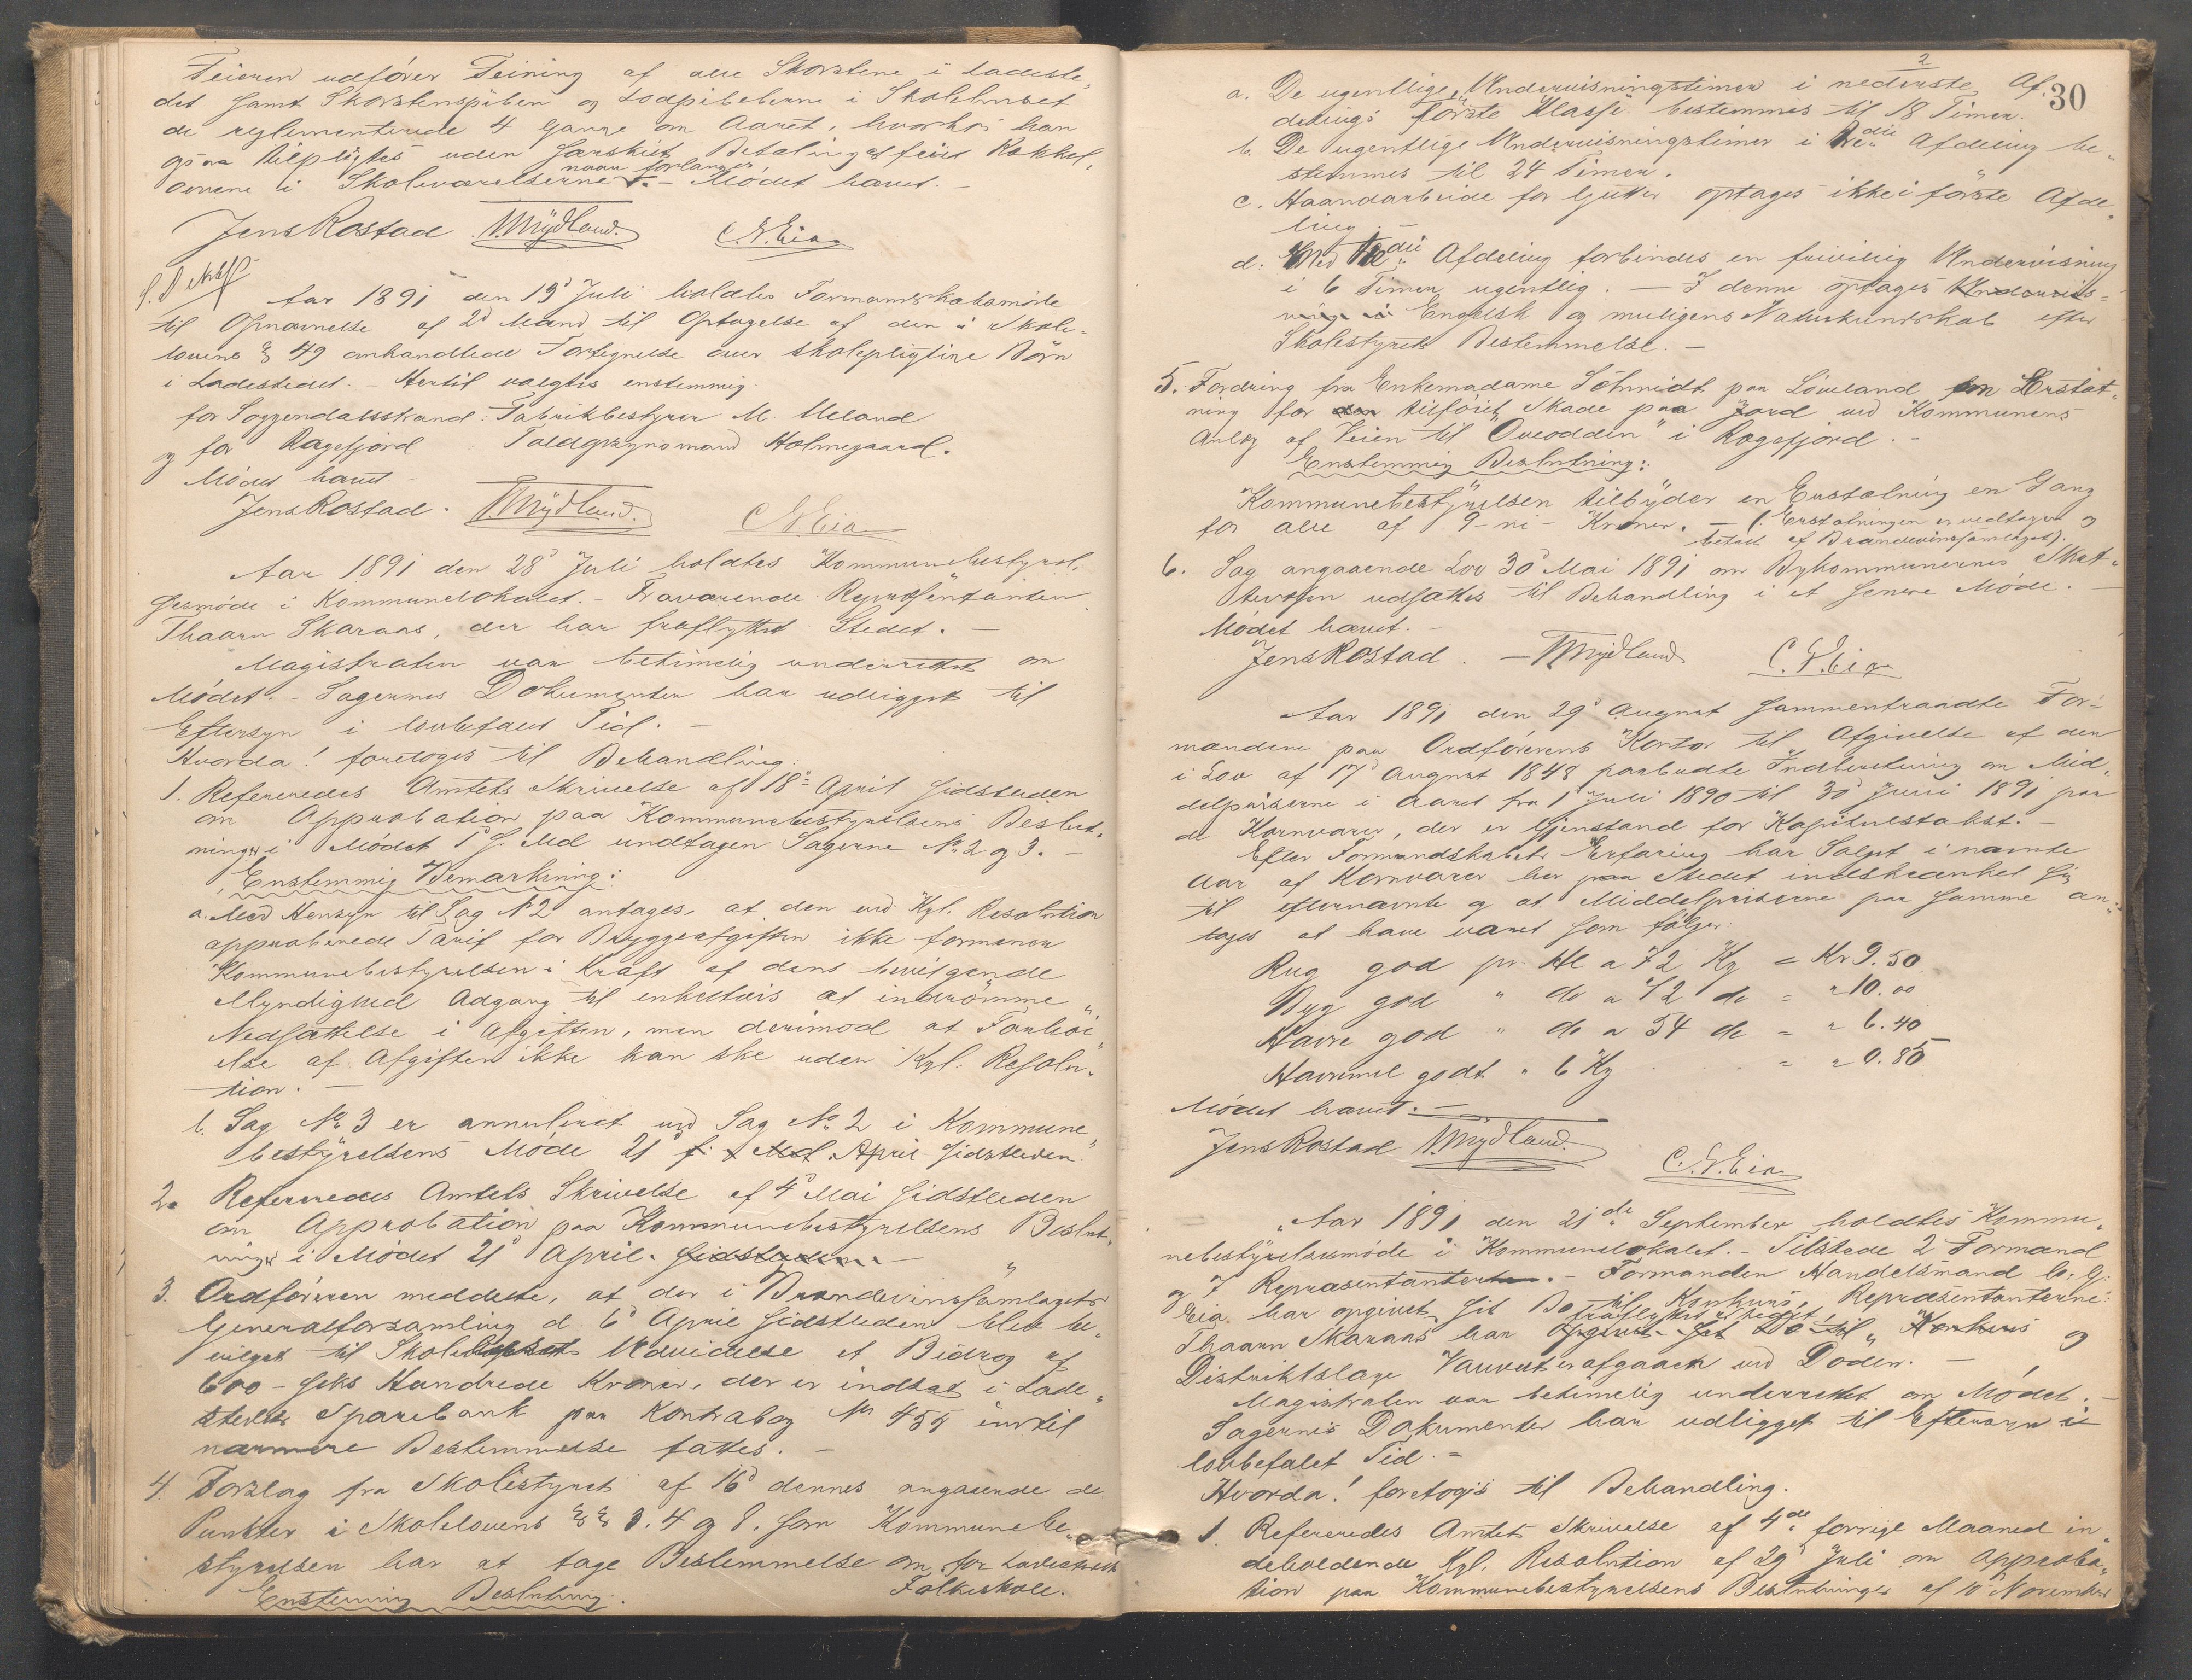 Feieren udfører Feining af alle Skorstene i Ladeste-
det samt Skorstenspiben og Lodpibeherne i Skolehuset
de reglementerede 4 Gange om Aaret, hvorhos han
ogsaa tilpligtes uden særskilt Betaling at feie Kakkel-
ovnene i Skoleværelserne naar forlanges. – Mødet hævet. –
Jens Rostad T. Mydland. C. N. Eia
Aar 1891 den 13d Juli holdtes Formandskabsmøde
til Opnævnelse af 2d Mand til Optagelse af den i Skole-
lovens § 49 omhandlede Fortegnelse over skolepligtige Børn
i Ladestedet. – Hertil valgtes enstemmig.
for Soggendalsstrand: Fabrikbestyrer M. Meland
og for Rægefjord Toldopsynsmand Holmegaard.
Mødet hævet –
Jens Rostad. T. Mydland. C. N. Eia
Aar 1891 den 28d Juli holdtes Kommunebestyrel-
sesmøde i Kommunelokalet. – Fraværende Repræsentanten
Thaarn Skaraas, der har fraflyttet Stedet. –
Magistraten var betimelig underrettet om
Mødet. – Sagernes Dokumenter har udligget til
Eftersyn i lovbefalet Tid. –
Hvorda! foretoges til Behandling.
1. Refereredes Amtets Skrivelse af 18de April sidstleden
om Approbation paa Kommunebestyrelsens Beslut-
ninger i Mødet 1d s. Md undtagen Sagerne No 2 og 3. –
Enstemmig Bemærkning:
a. Med Hensyn til Sag No 2 antages, at den ved Kgl. Resolution
approberede Tarif for Bryggeafgiften ikke formener
Kommunebestyrelsen i Kraft af dens bevilgende
Myndighed Adgang til enkeltvis at indrømme
Nedsættelse i Afgiften, men derimod at Forhøi-
else af Afgiften ikke kan ske uden Kgl. Resolu-
tion. –
b. Sag No 3 er annuleret ved Sag No 2 i Kommune-
bestyrelsens Møde 21d f. Md. April sidstleden.
2. Refereredes Amtets Skrivelse af 4d Mai sidstleden
om Approbation paa Kommunebestyrelsens Beslut-
ninger i Mødet 21d April. sidstleden. –
3. Ordføreren meddelte, at der i Brændevinssamlagets
Generalforsamling d. 6d April sidstleden blev be-
vilget til Skolehusets Udvidelse et Bidrag af
600 – seks Hundrede Kroner, der er indsat i Lade-
stedets Sparebank paa Kontrabog No 455 indtil
nærmere Bestemmelse fattes. –
4. Forslag fra Skolestyret af 16d dennes angaaende de
Punkter i Skolelovens §§ 3. 4 og 8. som Kommunebe-
styrelsen har at tage Bestemmelse om for Ladestedets
Folkeskole.
Enstemmig Beslutning:
30
a. De ugentlige Undervisningstimer i nederste Af-
delings første Klasse bestemmes til 18 Timer.
b. De ugentlige Undervisningstimer i Afdeling be-
stemmes til 24 Timer.
c. Haandarbeide for Gutter optages ikke i første Afde-
ling. –
d. Med Afdeling forbindes en frivillig Undervisning
i 6 Timer ugentlig. – I denne optages Undervis-
ning i Engelsk og muligens Naturkundskab efter
Skolestyrets Bestemmelse. –
5. Fordring fra Enkemadame Schmidt paa Løveland om Erstat-
ning for tilføiet Skade paa Jord ved Kommunens
Anlæg af Veien til "Oveodden" i Rægefjord. –
Enstemmig Beslutning:
Kommunebestyrelsen tilbyder en Erstatning en Gang
for alle af 9 – ni – Kroner. – (: Erstatningen er vedtagen og
betalt af Brændevinssamlaget).
6. Sag angaaende Lov 30d Mai 1891 om Bykommunernes Skat-
tevæsen udsættes til Behandling i et senere Møde. –
Mødet hævet. –
Jens Rostad. – T. Mydland C. N. Eia
Aar 1891 den 29d August sammentraadte For-
mændene paa Ordførerens Kontor til Afgivelse af den
i Lov af 17d August 1848 paabudte Indberetning om Mid-
delpriserne i Aaret fra 1d Juli 1890 til 30d Juni 1891 paa
de Kornvarer, der er Gjenstand for Kapitelstakst. –
Efter Formandskabets Erfaring har Salget i nævnte
Aar af Kornvarer her paa Stedet indskrænket sig
til efternævnte og at Middelpriserne paa samme an-
tages at have været som følger:
Rug god pr. Hl a 72 Kg = Kr 9.50
Byg god " do a 72 do = " 10.00
Havre god " do a 54 do = " 6.40
Havremel godt " 6 Kg . . . = " 0.85
Mødet hævet. –
Jens Rostad T. Mydland. C. N. Eia
Aar 1891 den 21de September holdtes Kommu-
nebestyrelsesmøde i Kommunelokalet. – Tilstede 2 Formænd
og 7 Repræsentanter. – Formanden Handelsmand C. N.
Eia har opgivet sit Bo til Konkurs, Repræsentanterne:
Thaarn Skaraas har fraflyttet Stedet opgivet sit Bo til Konkurs og
Distriktslæge Vauvert er afgaaet ved Døden. –
Magistraten var betimelig underrettet om Mødet. –
Sagernes Dokumenter har udligget til Eftersyn i
lovbefalet Tid. –
Hvorda! foretoges til Behandling.
1. Refereredes Amtets Skrivelse af 4de forrige Maaned in-
deholdende Kgl. Resolution af 29d Juli om Approba-
tion paa Kommunebestyrelsens Beslutninger af 10d November